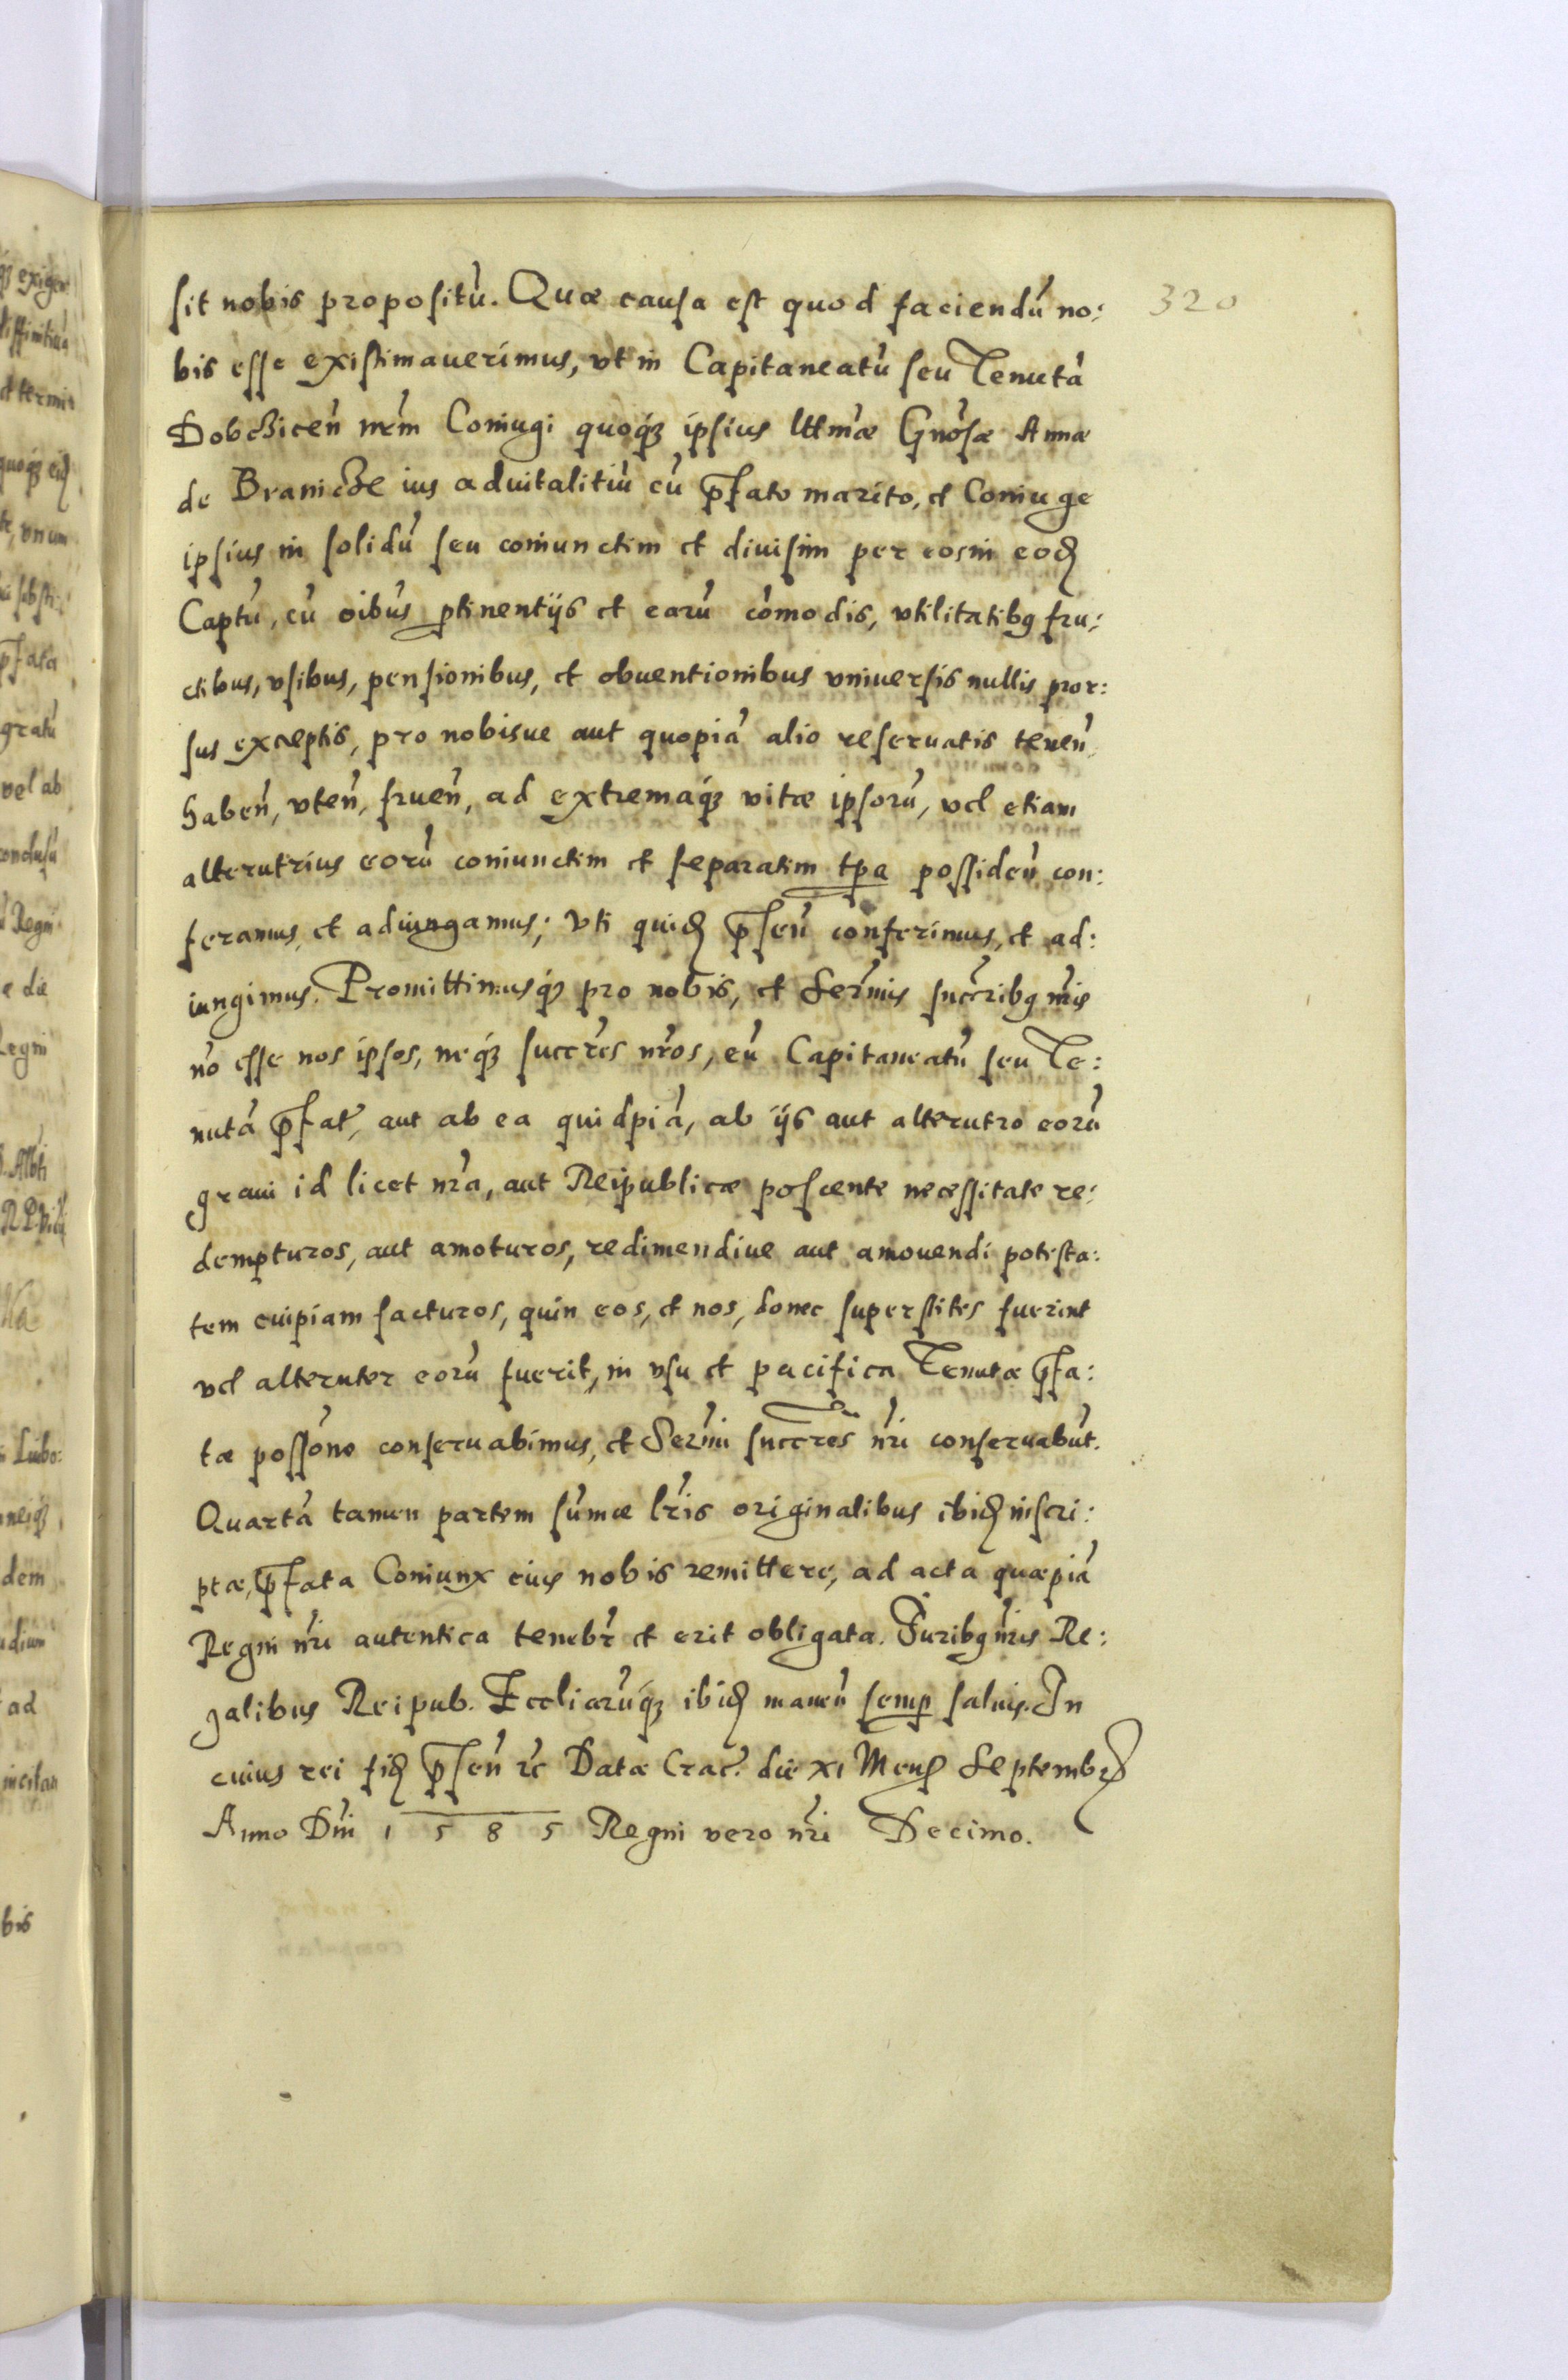 sit nobis propositũ. Quæ causa est quod faciendũ no: 320
bis esse existimauerimus, vt in Capitaneatũ seu Tenutã
Dobczicen̄ nr̃m Coniugi quoq́ꝫ ipsius Gn̄osæ Annæ
de Branicze ius aduitalitiũ cũ p̄fato marito, et Coniuge
ipsius in solidũ seu coniunctim et diuisim per eos in eod̄
Captũ, cũ oĩbus ꝑtinentijs et earũ com̃odis, vtilitatibꝫ fru:
ctibus, vsibus, pensionibus, et obuentionibus vniuersis nullis pror:
sus exceptis, pro nobisue aut quopiã alio reseruatis tenen̄
haben̄, vten̄, fruen̄, ad extremaq́ꝫ vitæ ipsorũ, vel etiam
alterutrius eorũ coniunctim et separatim tp̱a possiden̄ con:
feramus, et adiungamus; Vti quid̄ p̄sen̄ conferimus, et ad:
iungimus. Promittimusq́ꝫ pro nobis, et Serm̃is succr̃ibꝫ nr̃is
nõ esse nos ipsos, neq́ꝫ succr̃es nr̃os, eũ Capitaneatũ seu Te:
nutã p̄fat̃, aut ab ea quidpiã, ab ijs aut alterutro eorũ
graui id licet nr̃a, aut Reipublicæ poscente necessitate re:
dempturos, aut amoturos, redimendiue aut amouendi potesta:
tem cuipiam facturos, quin eos, et nos, donec superstites fuerint
vel alteruter eorũ fuerit, in vsu et pacifica Tenutæ p̄fa:
tæ possõne conseruabimus, et Serm̃i succr̃es nr̃i conseruabũt.
Quartã tamen partem sum̃æ lr̃is originalibus ibid̄ inscri:
ptæ, p̄fata Coniunx eius nobis remittere, ad acta quæpiã
Regni nr̃i autentica tenebr̃ et erit obligata. Juribꝫ nr̃is Re:
galibus Reipub. Eccliarũq́ꝫ ibid̄ manen̄ semp̱ saluis. In
cuius rei fid̄ p̄sen̄ r̃c Datæ Crac̃. die XI Mens̄ Septembr̄
Anno Dñi 1585 Regni vero nr̃i Decimo.